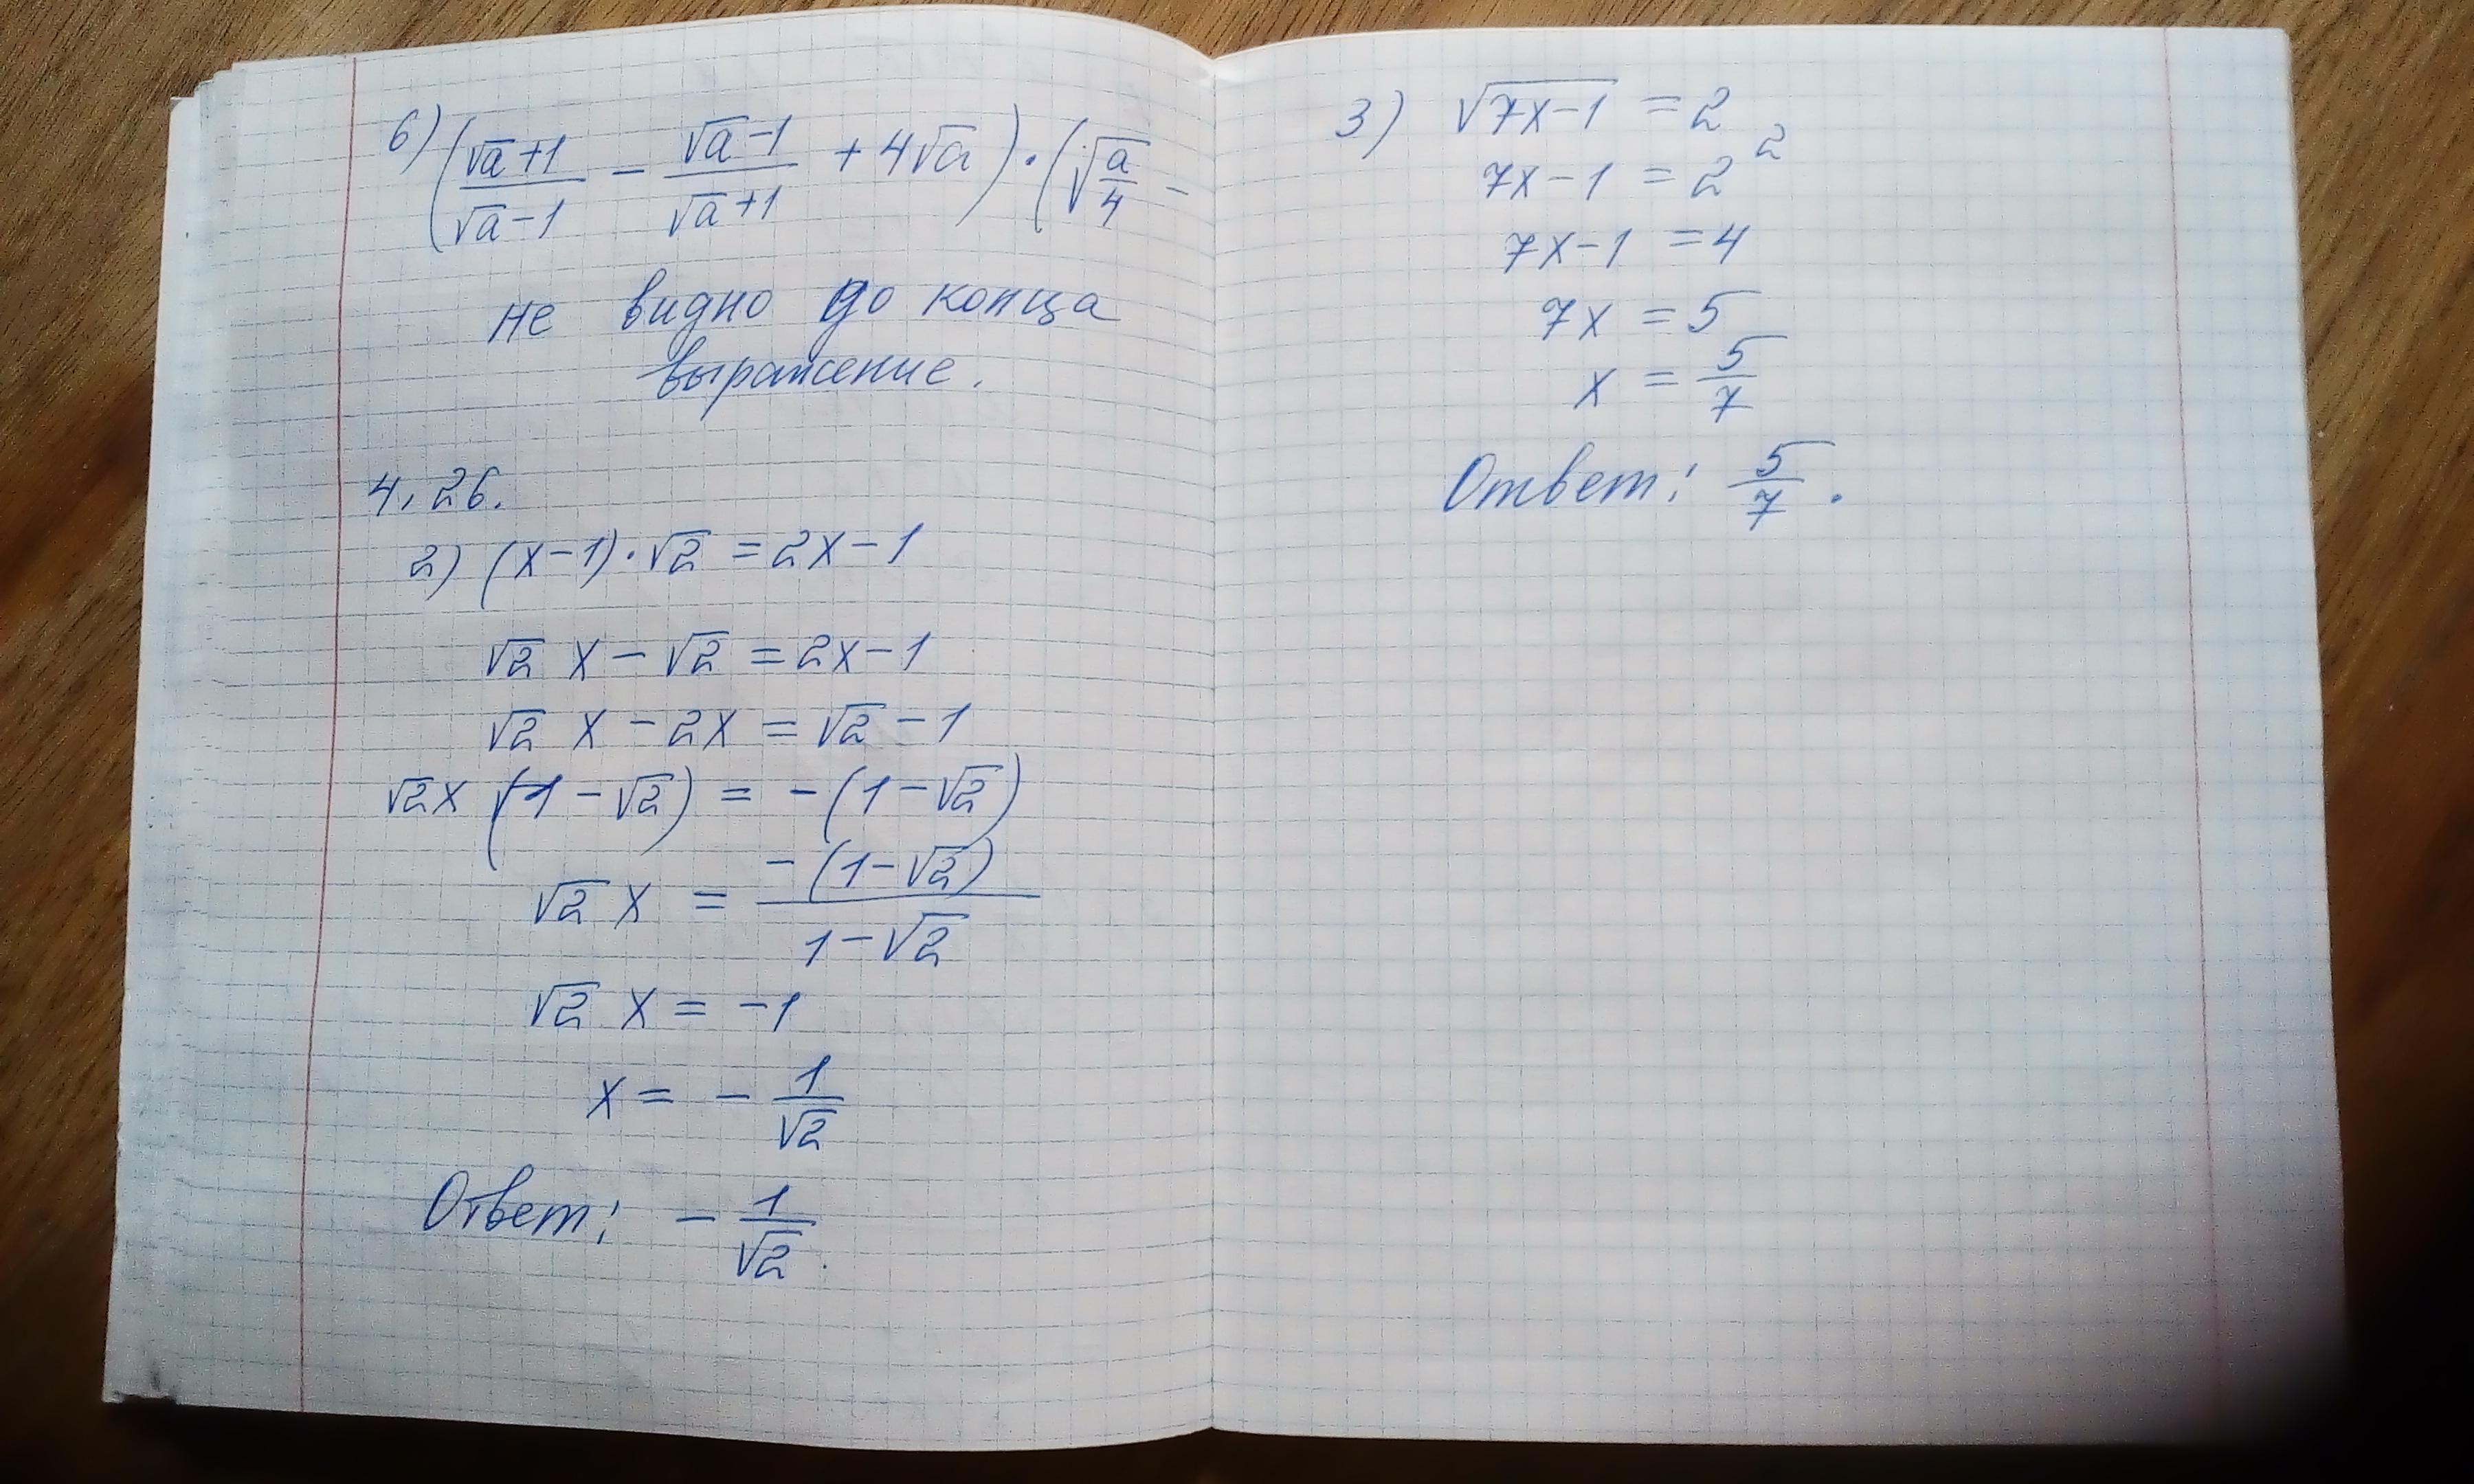 6) ((√a+1)/(√a-1) - (√a-1)/(√a+1) + 4√a) · (√(a/4) -
не видно до конца
выражение.
4,26.
2) (x-1)·√2 = 2x-1
√2 x - √2 = 2x-1
√2 x - 2x = √2 - 1
√2x (1-√2) = -(1-√2)
√2 x = -(1-√2)/(1-√2)
√2 x = -1
x = - 1/√2
Ответ: - 1/√2.
3) √(7x-1) = 2
7x-1 = 2²
7x-1 = 4
7x = 5
x = 5/7
Ответ: 5/7.